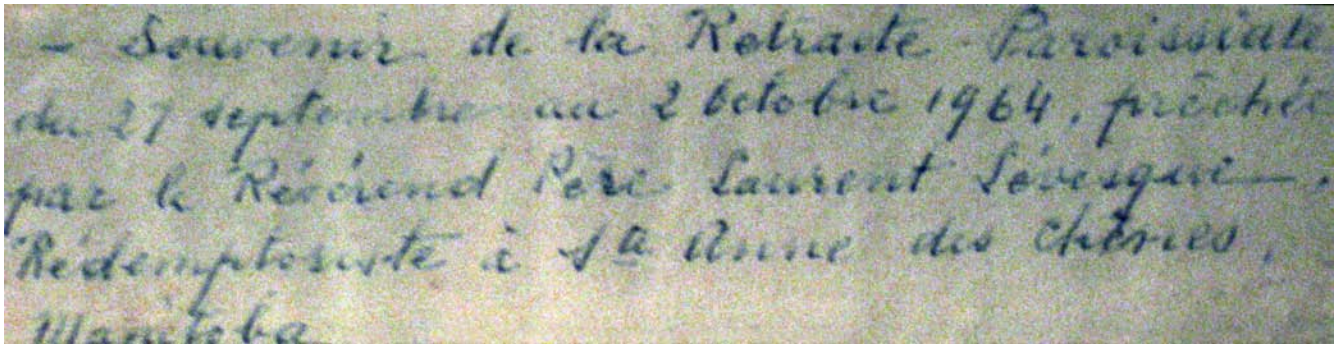 - Souvenir de la Retraite Paroissiale
du 27 septembre au 2 Octobre 1964, prêchée
par le Révérend Père Laurent Lévesque,
Rédemptoriste à Ste Anne des Chênes,
Manitoba